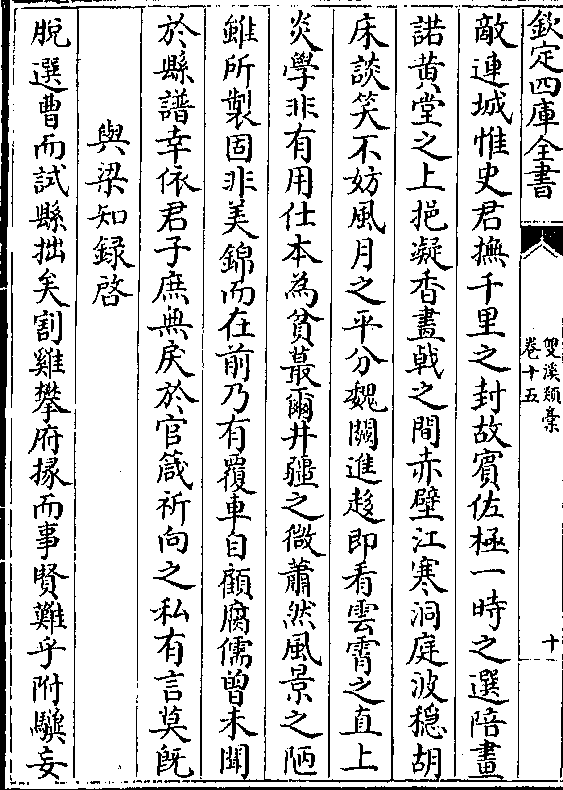 欽定四庫全書
雙溪類稾
卷十五
十
敵連城惟史君撫千里之封故賓佐極一時之選陪畫
諾黄堂之上挹凝香畫戟之間赤壁江寒洞庭波穏胡
床談笑不妨風月之平分魏闕進趍即看雲霄之直上
炎學非有用仕本為貧蕞爾井疆之微蕭然風景之陋
雖所製固非美錦而在前乃有覆車自顧腐儒曽未聞
於縣譜幸依君子庶無戾於官箴祈向之私有言莫既
與梁知録啓
脫選曹而試縣拙矣割雞攀府掾而事賢難乎附驥妄